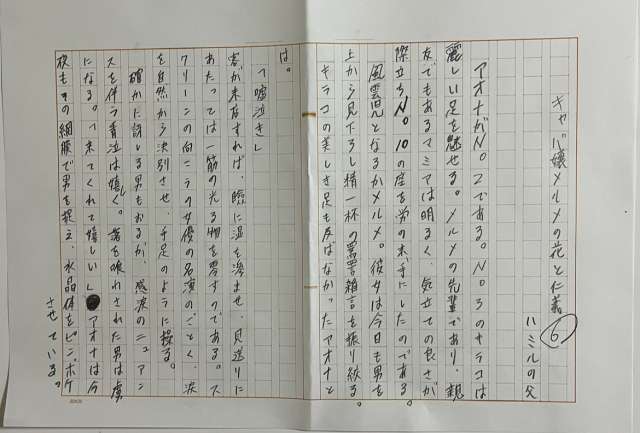 キャバ嬢メルメの花と仁義⑥
ハミルの父
アオナがNo.2である。No.3のキラコは
麗しい足を魅せる。メルメの先輩であり、親
友でもあるマミアは明るく、気立ての良さが
際立ちNo.10の座を労の末、手にしたのである。
風雲児となるかメルメ。彼女は今日も男を
上から見下ろし精一杯の罵詈雑言を振り絞る。
キラコの美しき足も及ばなかったアオナと
は。
「嘘泣き」
客が来店すれば、瞼に湿を滲ませ、見送りに
あたっては一筋の光る物を零すのである。ス
クリーンの向こうの女優の名演のごとく、涙
を自然から決別させ、手足のように操る。
確かに訝しる男もおるが、感涙のニュアン
スを伴う青泣は嬉しく。蜜を喰わされた男は虜
になる。「来てくれて嬉しい」アオナは今
夜もその網膜で男を捉え、水晶体をピンボケ
させている。